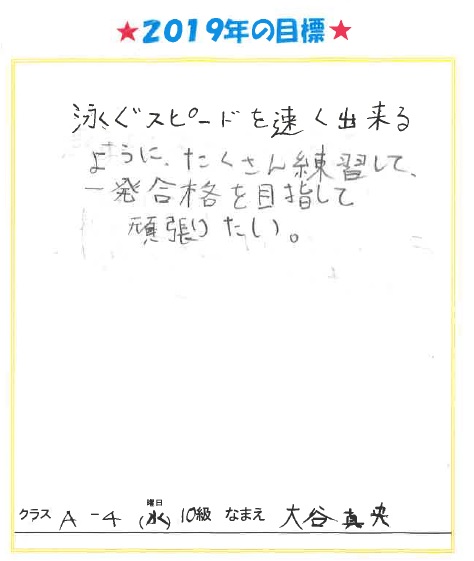 ★2019年の目標★
泳ぐスピードを速く出来る
ように、たくさん練習して、
一発合格を目指して
頑張りたい。
曜日
クラス A-4 (水) 10級 なまえ 大谷真央